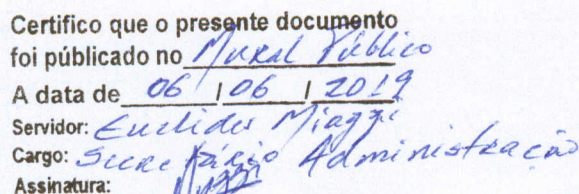 Certifico que o presente documento
foi públicado no Mural Público
A data de 06 / 06 / 2019
Servidor: Euclides Miaggi
Cargo: Secretário Administração
Assinatura: